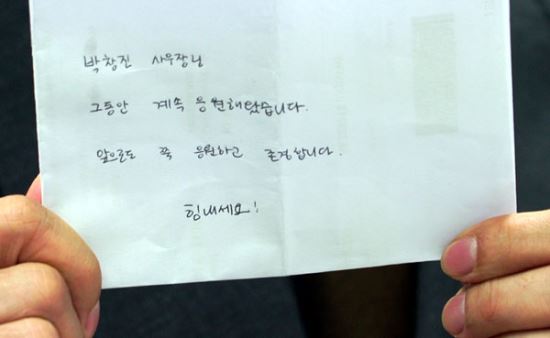 박창진 사무장님
그동안 계속 응원해왔습니다.
앞으로도 쭉 응원하고 존경합니다.
힘내세요!